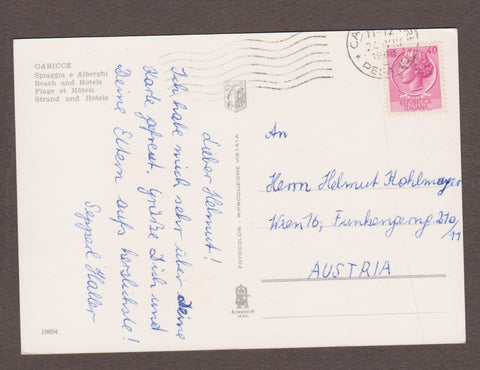 GABICCE
Spiaggia e Alberghi
Beach and Hotels
Plage et Hôtels
Strand und Hotels
Lieber Helmut!
Ich habe mich sehr über Deine
Karte gefreut. Grüße Dich und
Deine Eltern aufs herzlichste!
Sepperl Haller
FOTOCOLOR - RIPRODUZIONE VIETATA
11-12
1968
40
Herrn Helmut Kohlmayer
Wien 16, Funkengerng 21a/11
AUSTRIA
19604